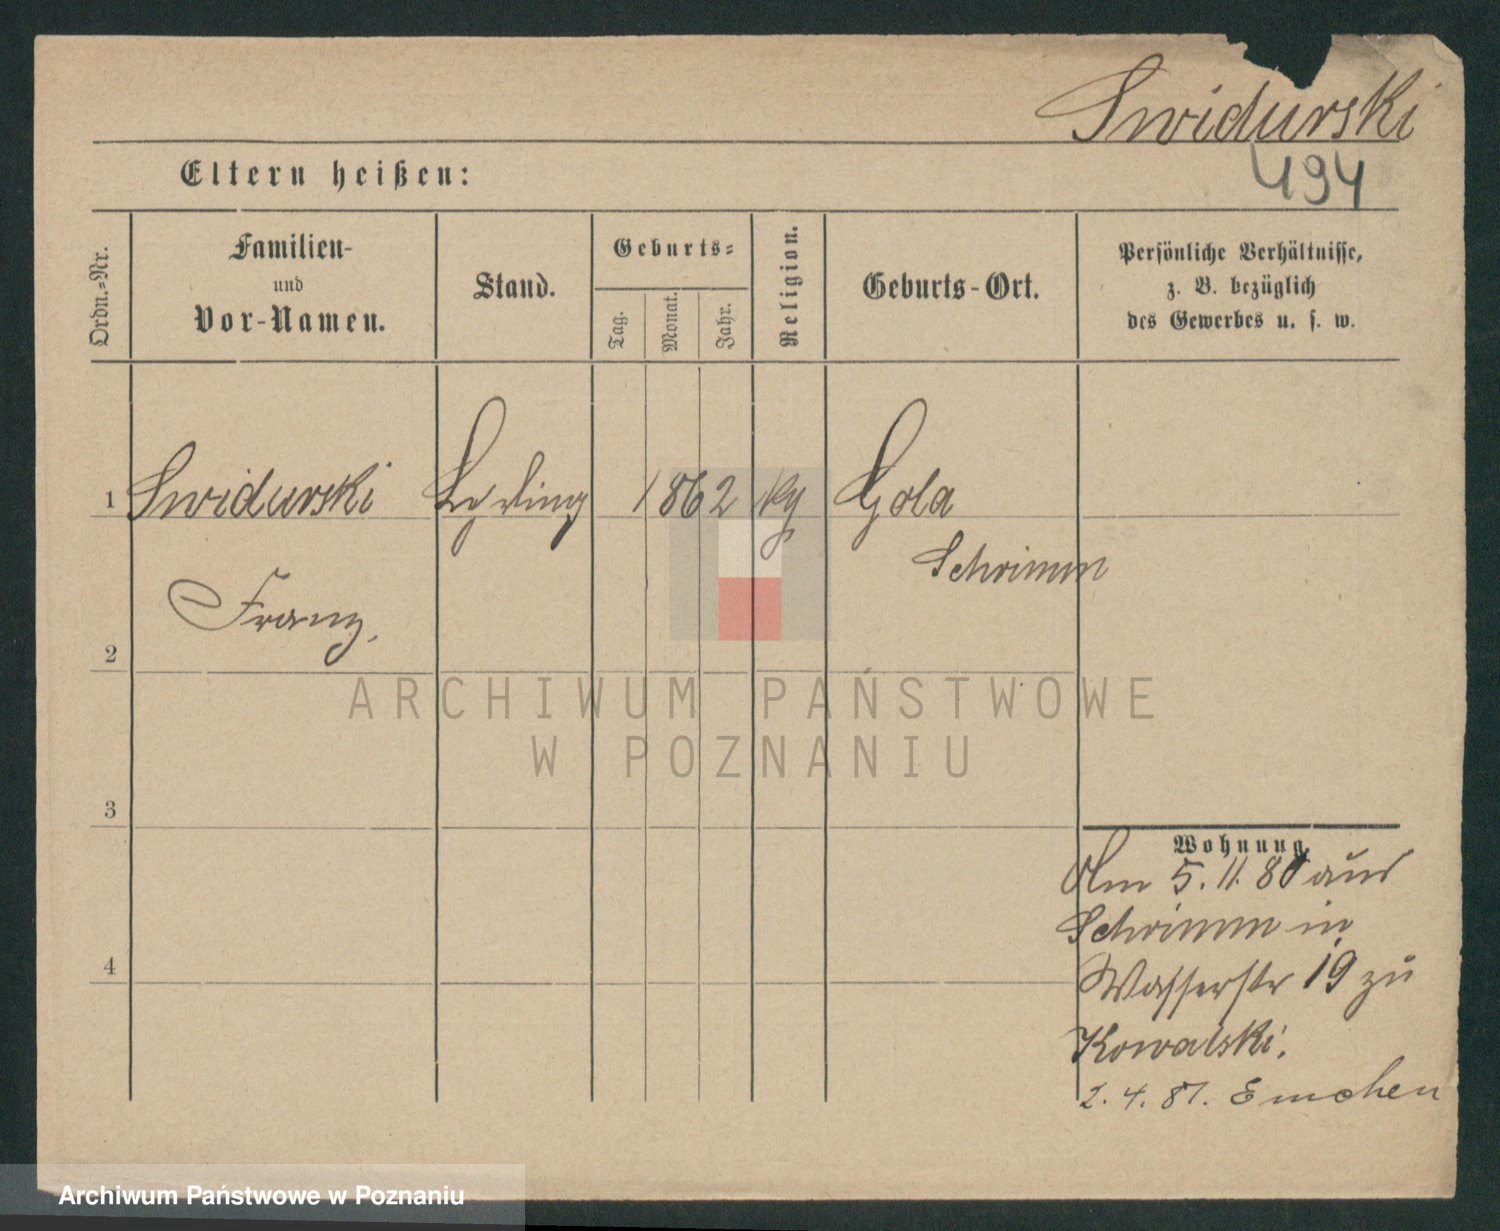 Swidurski
494
Eltern heißen:
Ordn.-Nr.
Familien-
und
Vor-Namen.
Stand.
Geburts-
Tag.
Monat.
Jahr.
Religion.
Geburts-Ort.
Persönliche Verhältnisse,
z. B. bezüglich
des Gewerbes u. s. w.
1 Swidurski 1862 Gola
Schrimm
Franz,
2
ARCHIWUM PAŃSTWOWE
W POZNANIU
3
Wohnung.
5. 11. 80 aus
Schrimm in
4
Wasserstr 19 zu
Kowalski.
2. 4. 81.
Archiwum Państwowe w Poznaniu